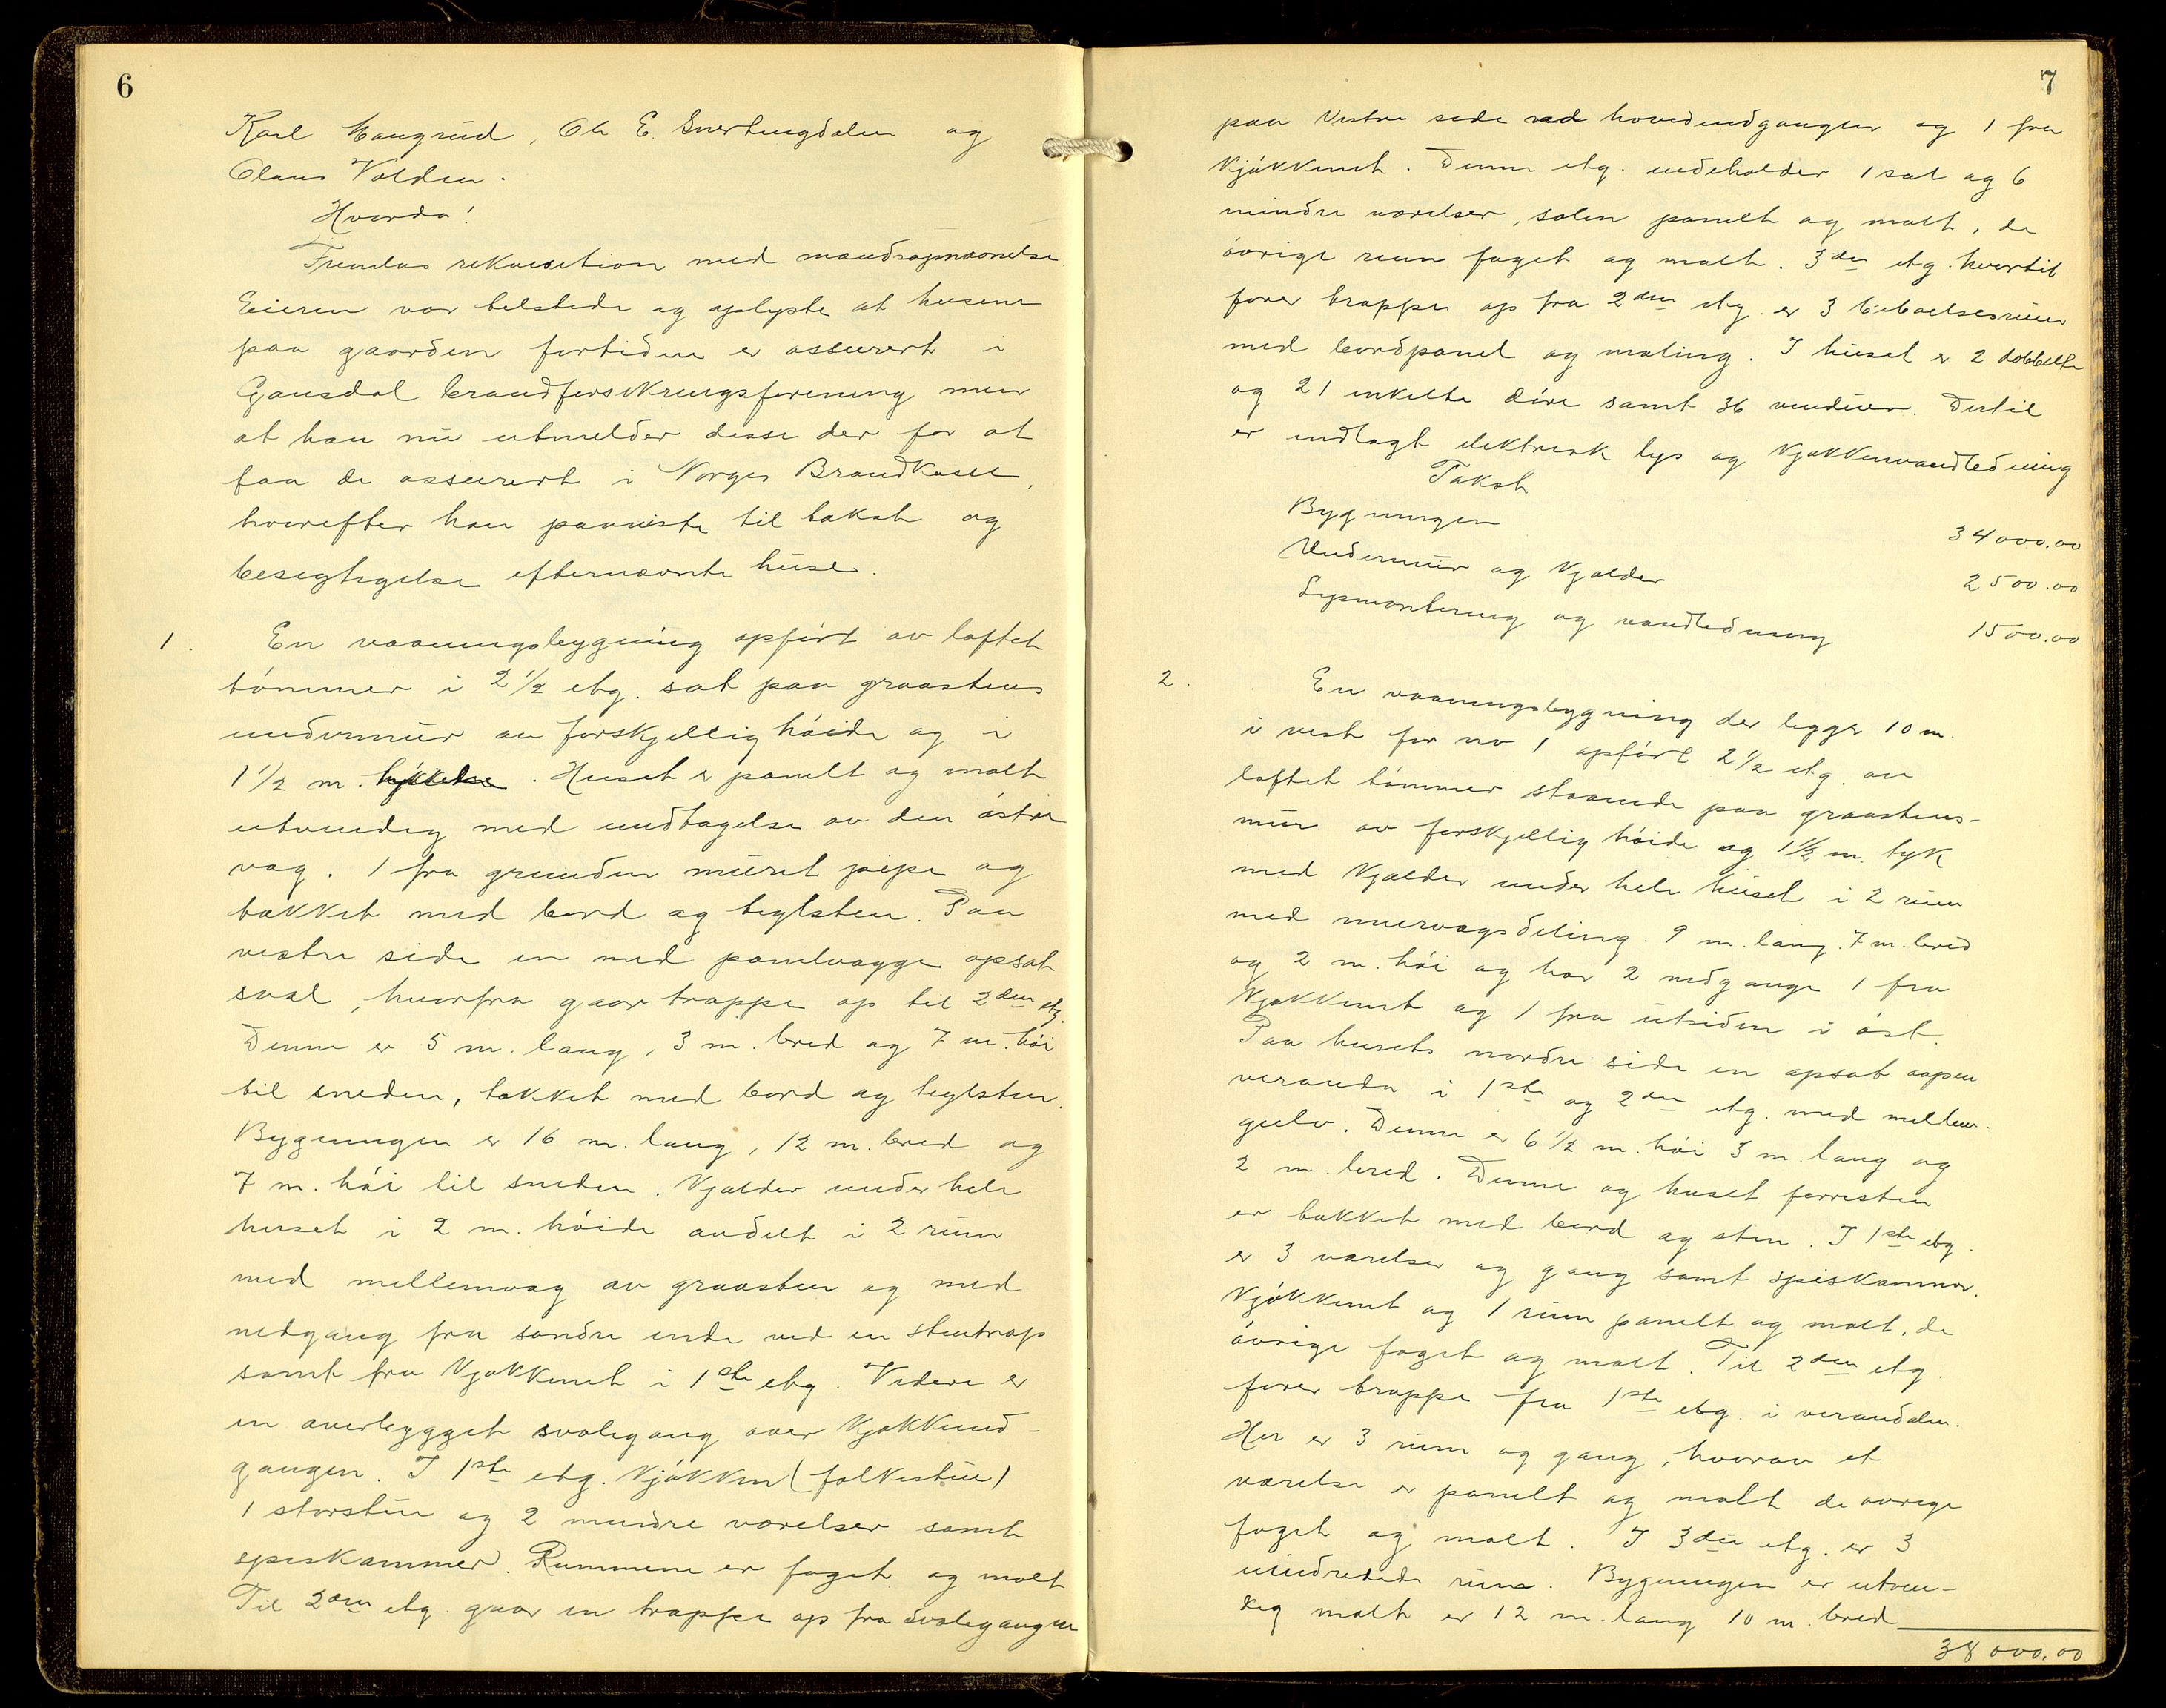 6
Karl Haugrud, Ole E. Svertingdalen og
Olaus Volden.
Hvorda!
Fremlas rekvisition med mandsopnævnelse.
Eieren var tilstede og oplyste at husene
paa gaarden fortiden er assurert i
Gausdal brandforsikringsforening men
at han nu utmelder disse der for at
faa de assurert i Norges Brandkasse,
hvorefter han paaviste til takst og
besigtigelse efternævnte huse.
1. En vaaningsbygning opført av laftet
tømmer i 2 1/2 etg. sat paa graastens
undermur av forskjellig høide og i
1 1/2 m. tykkelse. Huset er panelt og malt
utvendig med undtagelse av den østre
væg. 1 fra grunden muret pipe og
tækket med bord og teglsten. Paa
vestre side en med panelvægge opsat
sval, hvorfra gaar trappe op til 2den etg.
Denne er 5 m. lang, 3 m. bred og 7 m. høi
til sneden, tækket med bord og teglsten.
Bygningen er 16 m. lang, 12 m. bred og
7 m. høi til sneden. Kjælder under hele
huset i 2 m. høide avdelt i 2 rum
med mellemvæg av graasten og med
nedgang fra søndre ende ved en stentrap
samt fra kjøkkenet i 1ste etg. Videre er
en overbygget svalegang over kjøkkenned-
gangen. I 1ste etg. kjøkken (folkestue)
1 storstue og 2 mindre værelser samt
spiskammer. Rummene er faget og malt
Til 2den etg. gaar en trappe op fra svalegangen
7
paa vestre side ved hovedindgangen og 1 fra
kjøkkenet. Denne etg. indeholder 1 sal og 6
mindre værelser, salen panelt og malt, de
øvrige rum faget og malt. 3die etg. hvortil
fører trappe op fra 2den etg. er 3 beboelsesrum
med bordpanel og maling. I huset er 2 dobbelte
og 21 enkelte døre samt 36 vinduer. Dertil
er indlagt elektrisk lys og kjøkkenvandledning
Takst
Bygningen 34000.00
Undermur og kjælder 2500.00
Lysmontering og vandledning 1500.00
2. En vaaningsbygning der ligger 10 m.
i vest for no 1 opført 2 1/2 etg. av
laftet tømmer staaende paa graastens-
mur av forskjellig høide og 1 1/2 m. tyk
med kjælder under hele huset i 2 rum
med murvægsdeling. 9 m. lang. 7 m. bred
og 2 m. høi og har 2 nedgange 1 fra
kjøkkenet og 1 fra utsiden i øst.
Paa husets nordre side en opsat aapen
veranda i 1ste og 2den etg. med mellem-
gulv. Denne er 6 1/2 m. høi 3 m. lang og
2 m. bred. Denne og huset forresten
er tækket med bord og sten. I 1ste etg.
er 3 værelser og gang samt spiskammer.
Kjøkkenet og 1 rum panelt og malt, de
øvrige faget og malt. Til 2den etg.
fører trappe fra 1ste etg. i verandalen.
Her er 3 rum og gang, hvorav et
værelse er panelt og malt de øvrige
faget og malt. I 3die etg. er 3
uindredede rum. Bygningen er utven-
dig malt er 12 m. lang 10 m. bred
38 000.00